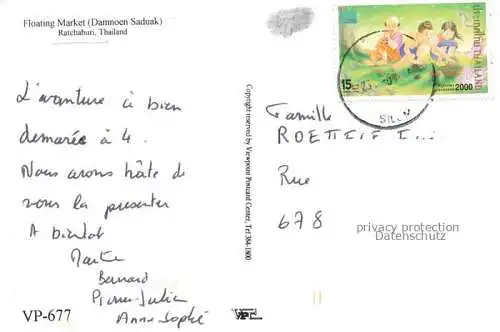 Floating Market (Damnoen Saduak)
Ratchaburi, Thailand
L'avanture à bien
demarée à 4.
Nous avons hâte de
vous la presenter
A bientot
Bernard
Pierre-Julien
Anne Sophie
VP-677
Copyright reserved by Viewpoint Postcard Center, Tel 384-1800
VPC
ประเทศไทย THAILAND
15
2000
Famille
Rue
678
privacy protection
Datenschutz